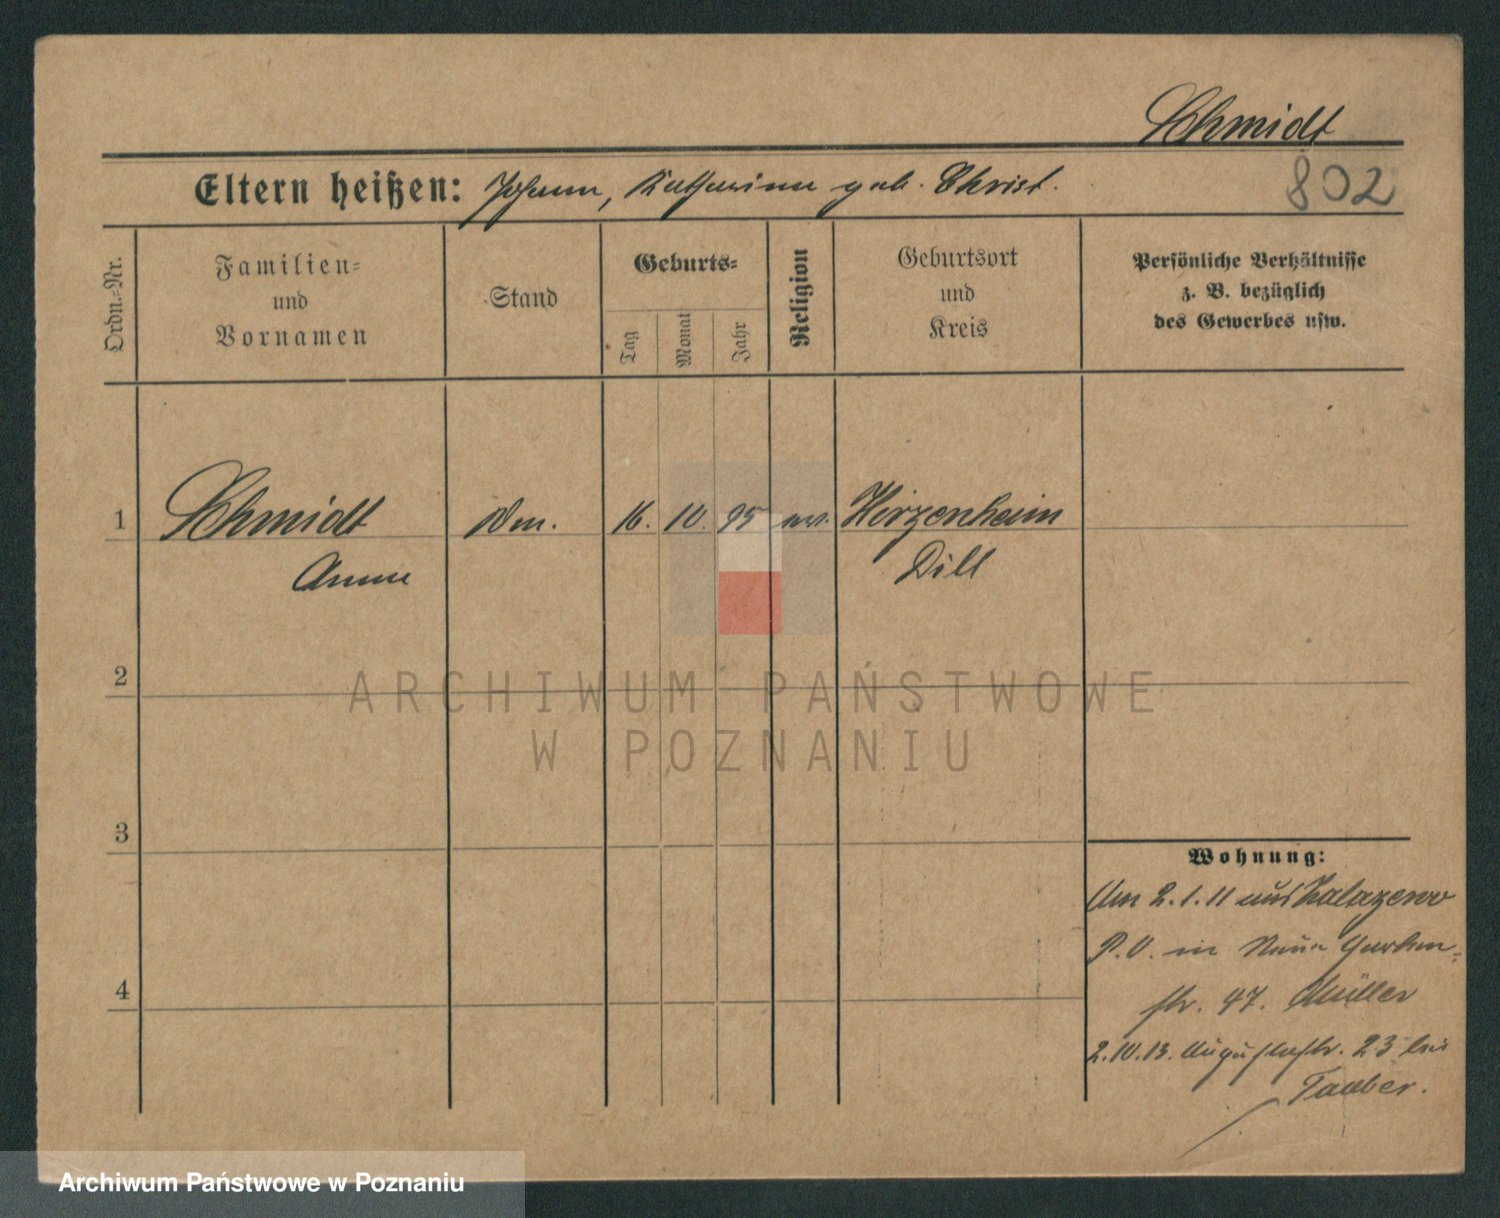 Schmidt
Eltern heißen: Johann, Katharina geb. Christ.
802
Ordn.-Nr.
Familien-
und
Vornamen
Stand
Geburts-
Tag
Monat
Jahr
Religion
Geburtsort
und
Kreis
Persönliche Verhältnisse
z. B. bezüglich
des Gewerbes usw.
1 Schmidt 16. 10. 95 ev. Hirzenheim
Anna Dill
2
3
4
Wohnung:
Am 2.1.11 aus Zalazewo
P.O. in Neue Garten-
str. 47. Müller
2.10.13. Augustastr. 23 bei
Tauber.
ARCHIWUM PAŃSTWOWE
W POZNANIU
Archiwum Państwowe w Poznaniu